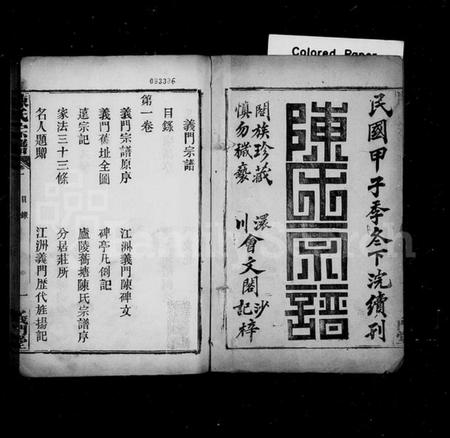 Colored Paper
民國甲子季冬下浣續刊
陳氏宗譜
闔族珍藏
慎勿褻
川會文閣記梓
093396
義門宗譜
目錄
第一卷
義門宗譜原序
江洲義門陳碑文
義門舊址全圖
碑亭凡倒記
宗記
廬陵蓄塘陳氏宗譜序
家法三十三條
分居莊所
名人題贈
江洲義門歷代旌揚記
陳氏宗譜
目錄
義門堂